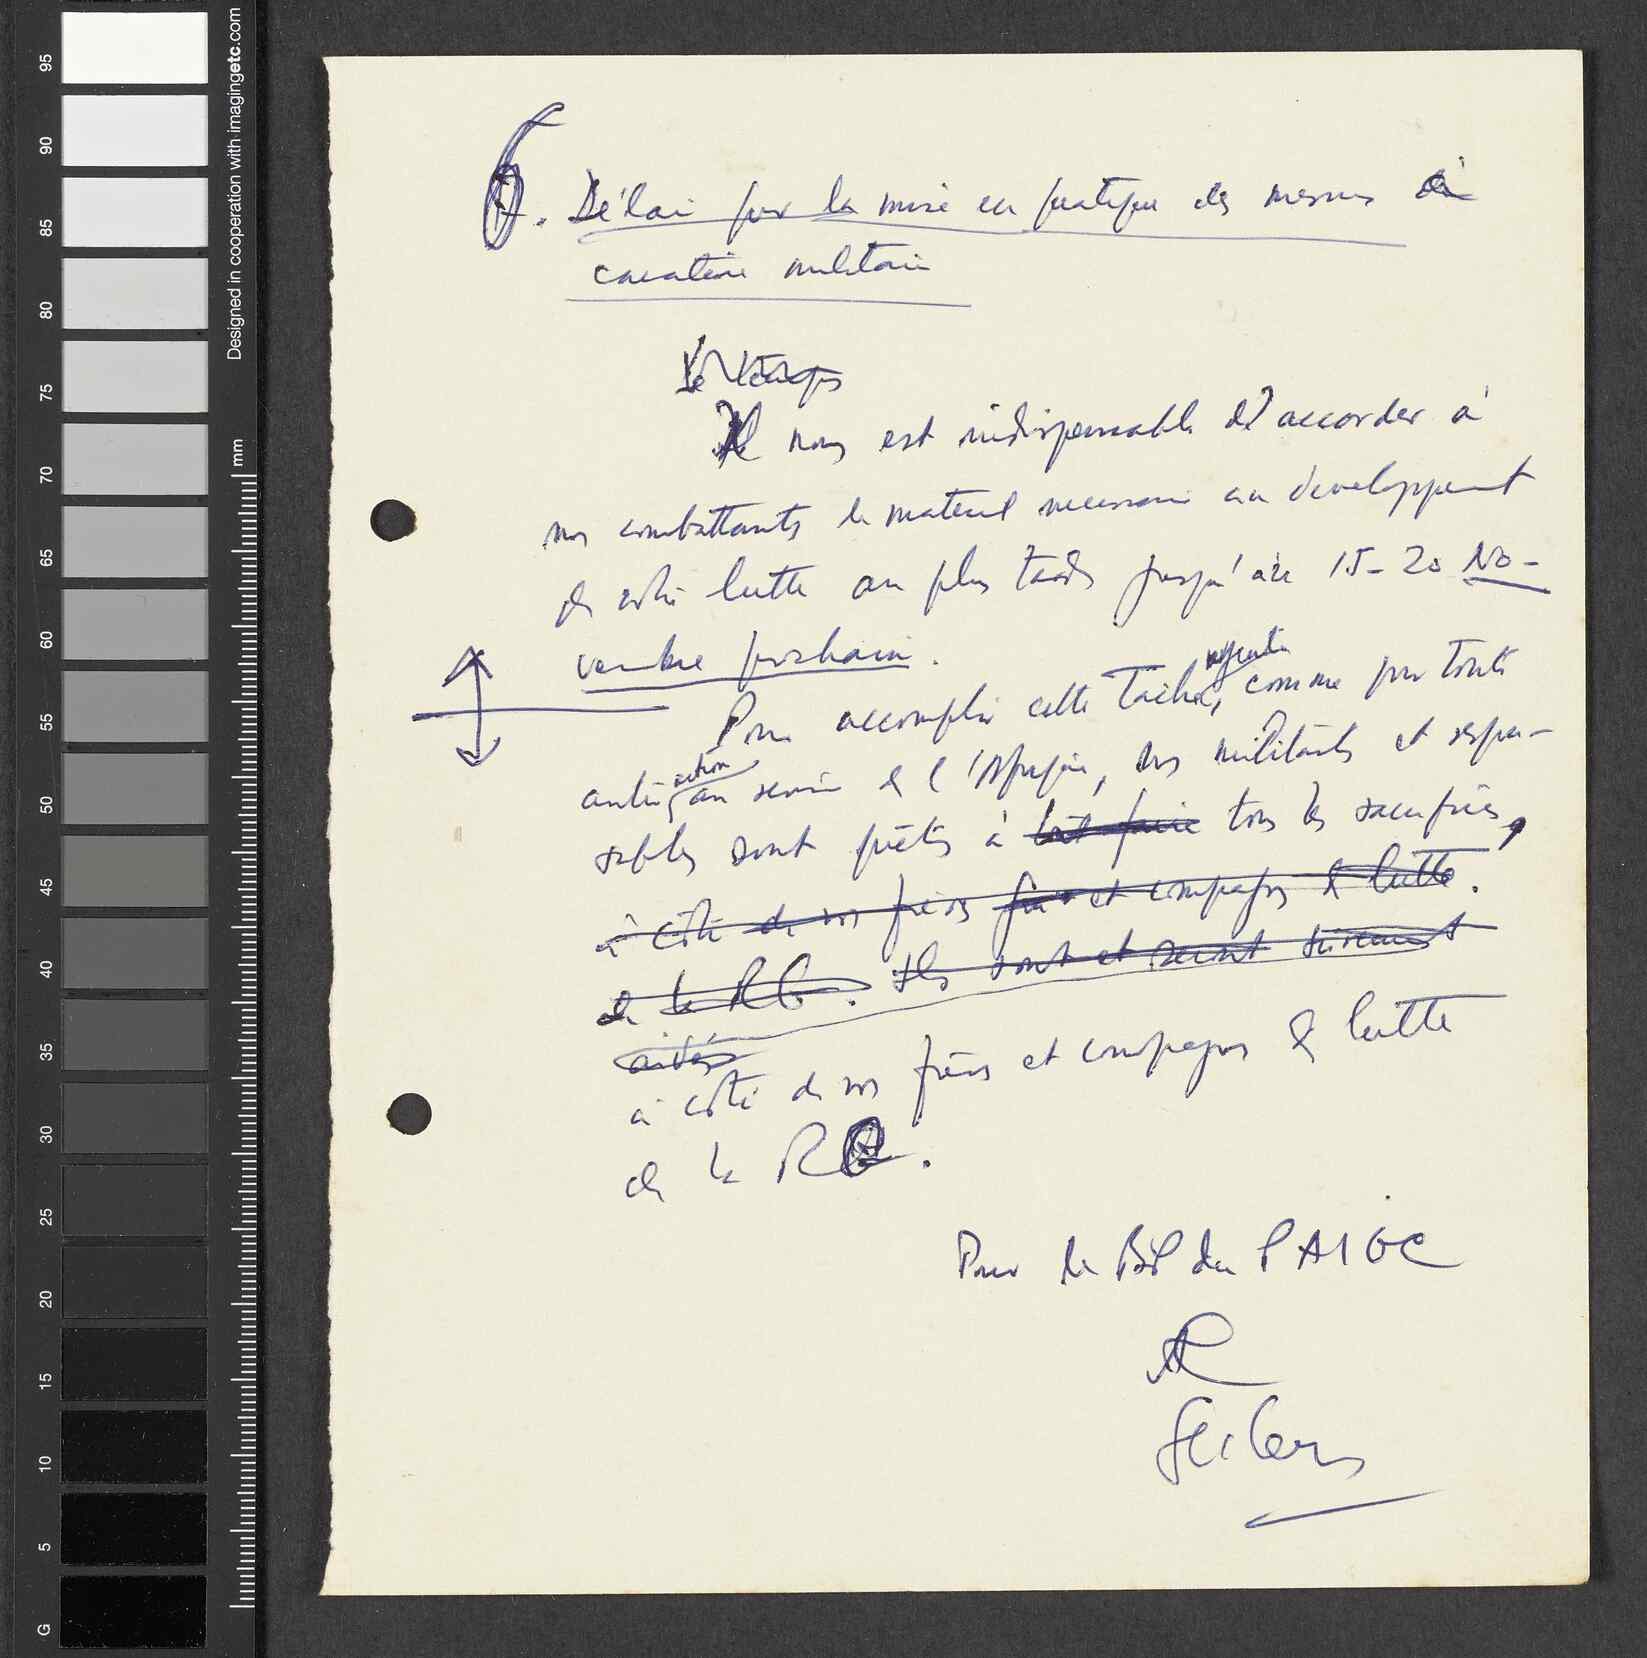 6. Délai pour la mise en pratique des mesures à
caractère militaire
Le temps
Il nous est indispensable d'accorder à
nos combattants le matériel necessaire au développement
de notre lutte au plus tard jusqu'au 15-20 No-
vembre prochain.
Pour accomplir cette tâche urgente, comme pour toute
autre action au service de l'Afrique, nos militants et respon-
sables sont prêts à tout faire tous les sacrifices,
à côté de nos frères et compagnons de lutte.
de la RG. Ils sont et seront sûrement
aidés
à côté de nos frères et compagnons de lutte
de la RG.
Pour le BP du PAIGC
95
90
85
80
75
70
65
60
55
50
45
40
35
30
25
20
15
10
5
G
mm
Designed in cooperation with imagingetc.com